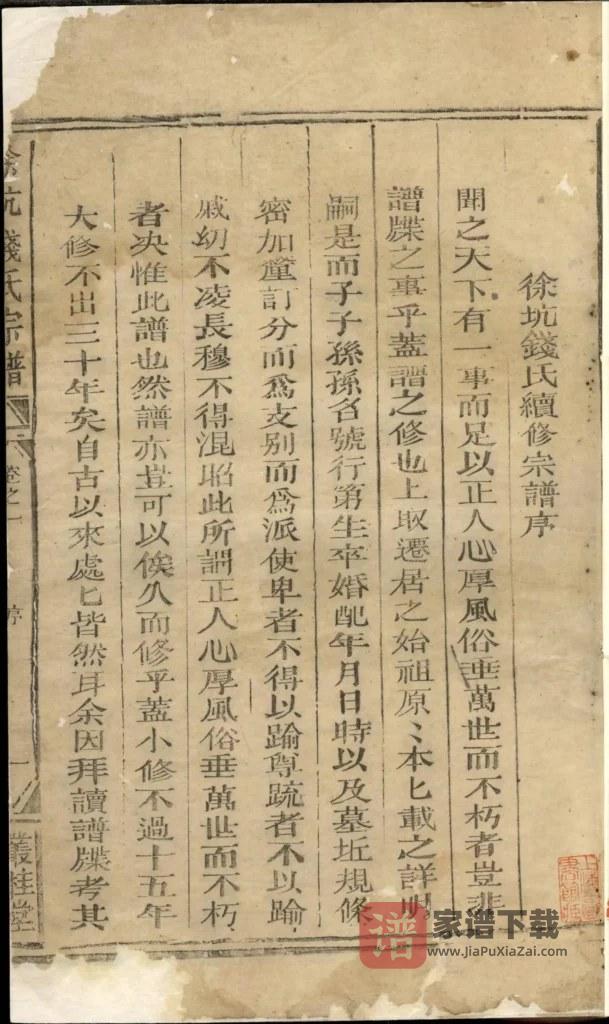 徐坑錢氏續修宗譜序
聞之天下有一事而足以正人心厚風俗垂萬世而不朽者豈非
譜牒之事乎蓋譜之修也上取遷居之始祖原〻本匕載之詳明
嗣是而子子孫孫名號行第生卒婚配年月日時以及墓坵規條
密加釐訂分而爲支別而爲派使卑者不得以踰尊疏者不以踰
戚幼不凌長穆不得混昭此所謂正人心厚風俗垂萬世而不朽
者决惟此譜也然譜亦豈可以俟久而修乎蓋小修不過十五年
大修不出三十年矣自古以來處匕皆然耳余因拜讀譜牒考其
徐坑錢氏宗譜
卷之一
序
一
叢桂堂
譜
家谱下载
www.JiaPuXiaZai.com